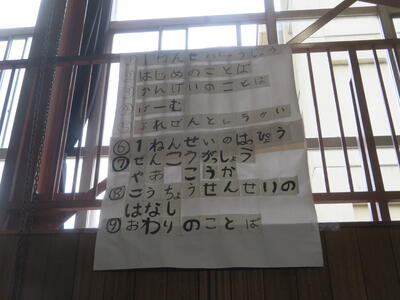 ①1ねんせいにゅうじょう
②はじめのことば
③かんげいのことば
④げーむ
⑤ぷれぜんとしょうかい
⑥1ねんせいのはっぴょう
⑦せんこうがっしょう
やあ こうか
⑧こうちょうせんせいの
はなし
⑨おわりのことば